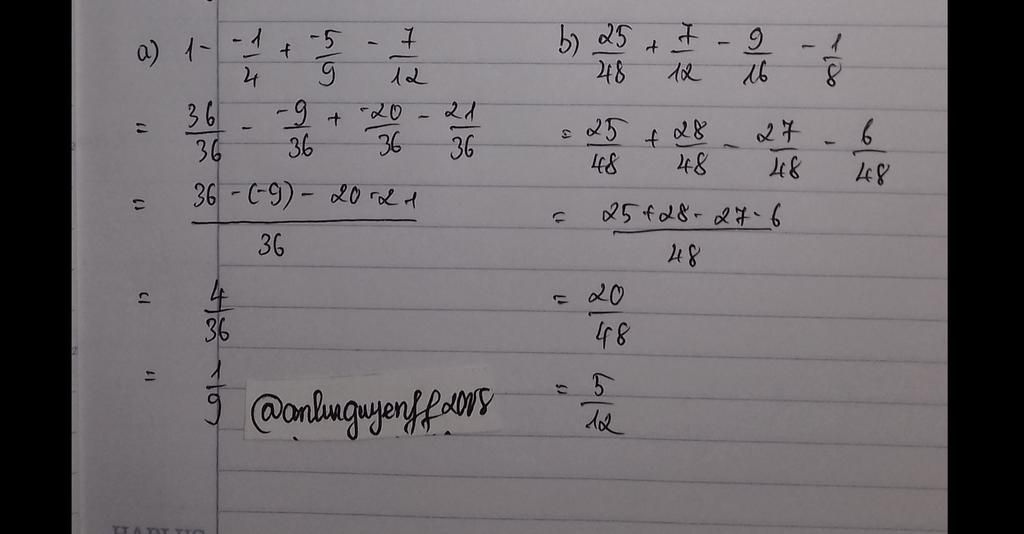 a) 1 - -1/4 + -5/9 - 7/12
= 36/36 - -9/36 + -20/36 - 21/36
= 36 - (-9) - 20 - 21 / 36
= 4/36
= 1/9
b) 25/48 + 7/12 - 9/16 - 1/8
= 25/48 + 28/48 - 27/48 - 6/48
= 25 + 28 - 27 - 6 / 48
= 20/48
= 5/12